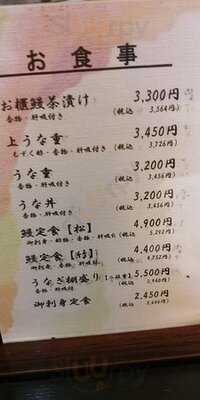 お食事
お櫃鰻茶漬け 3,300円
香物・肝吸付き (税込 3,564円)
上うな重 3,450円
もずく酢・香物・肝吸付き (税込 3,726円)
うな重 3,200円
香物・肝吸付き (税込 3,456円)
うな丼 3,200円
香物・肝吸付き (税込 3,456円)
鰻定食【松】 4,900円
御刺身・香物・肝吸付 (税込 5,292円)
鰻定食【竹】 4,400円
(税込 4,752円)
うなぎ桶盛り 5,500円
香物・肝吸付 (税込 5,940円)
御刺身定食 2,450円
(税込